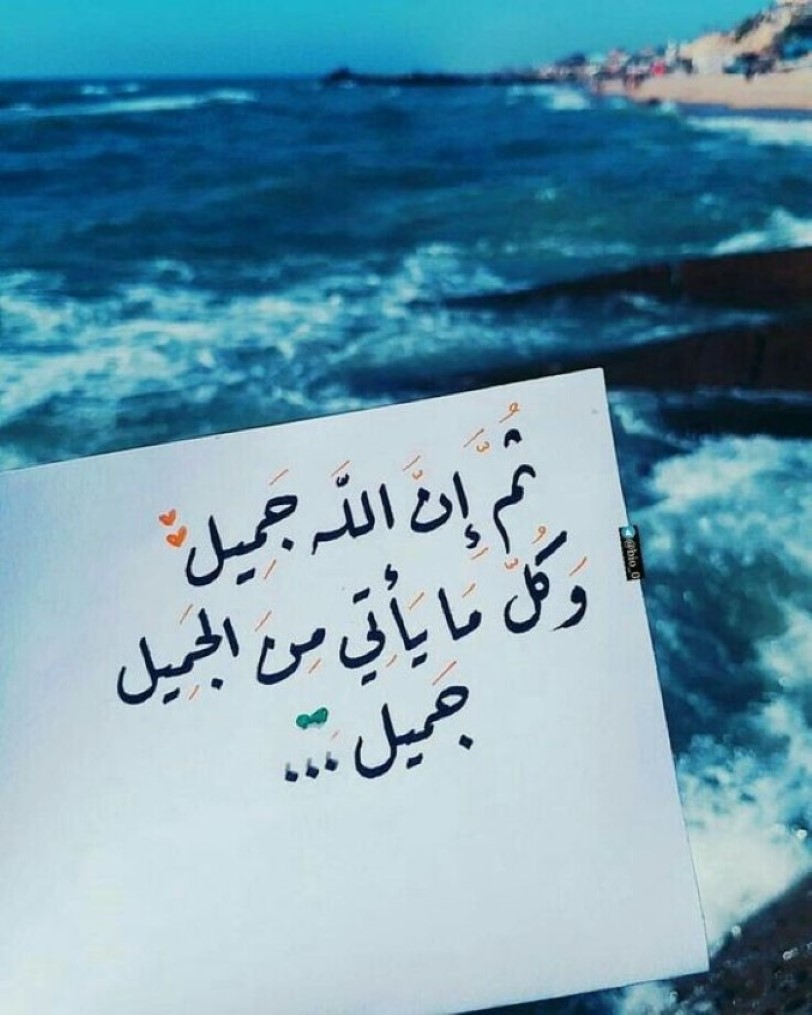 ثُمَّ إِنَّ اللَّه جَمِيل
وَكُلّ مَا يَأْتِي مِنَ الجَمِيل
جَميل ...